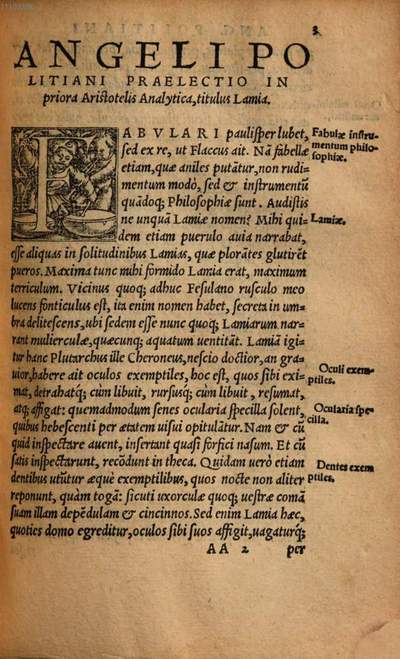 3
ANGELI PO
LITIANI PRAELECTIO IN
priora Aristotelis Analytica, titulus Lamia.
FABVLARI paulisper lubet,
sed ex re, ut Flaccus ait. Nã fabellæ
etiam, quæ aniles putãtur, non rudi-
mentum modò, sed & instrumentũ
quãdoq; Philosophiæ sunt. Audistis
ne unquã Lamiæ nomen? Mihi qui-
dem etiam puerulo auia narrabat,
esse aliquas in solitudinibus Lamias, quæ plorãtes glutirẽt
pueros. Maxima tunc mihi formido Lamia erat, maximum
terriculum. Vicinus quoq; adhuc Fesulano rusculo meo
lucens fonticulus est, ita enim nomen habet, secreta in um-
bra delitescens, ubi sedem esse nunc quoq; Lamiarum nar-
rant mulierculæ, quæcunq; aquatum uentitãt. Lamiã igi-
tur hanc Plutarchus ille Cheroneus, nescio doctior, an gra-
uior, habere ait oculos exemptiles, hoc est, quos sibi exi-
mat, detrahatq; cùm libuit, rursusq; cùm libuit, resumat,
atq; affigat: quemadmodum senes ocularia specilla solent,
quibus hebescenti per ætatem uisui opitulãtur. Nam & cũ
quid inspectare auent, insertant quasi forfici nasum. Et cũ
satis inspectarunt, recõdunt in theca. Quidam uerò etiam
dentibus utũtur æquè exemptilibus, quos nocte non aliter
reponunt, quàm togã: sicuti uxorculæ quoq; uestræ comã
suam illam depẽdulam & cincinnos. Sed enim Lamia hæc,
quoties domo egreditur, oculos sibi suos affigit, uagaturq;
AA 2 per
Fabulæ instru-
mentum philo-
sophiæ.
Lamiæ.
Oculi exem-
ptiles.
Ocularia spe-
cilla.
Dentes exem
ptiles.